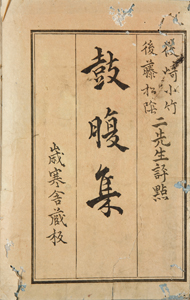 篠崎小竹
後藤松陰
二先生評點
鼓腹集
歳寒舎藏板